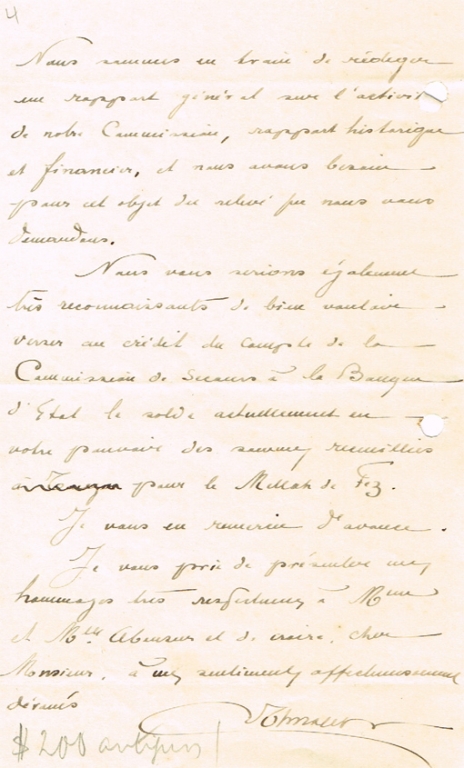 4
Nous sommes en train de rédiger
un rapport général sur l'activité
de notre Commission, rapport historique
et financier, et nous avons besoin
pour cet objet du relevé que nous vous
demandons.
Nous vous serions également
très reconnaissants de bien vouloir
verser au crédit du compte de la
Commission de Secours à la Banque
d'Etat le solde actuellement en
votre pouvoir des sommes recueillies
pour le Mellah de Fez.
Je vous en remercie d'avance.
Je vous prie de présenter mes
hommages très respectueux à Mme
et Mlle Abensur et de croire, cher
Monsieur, à mes sentiments affectueusement
dévoués
$ 200